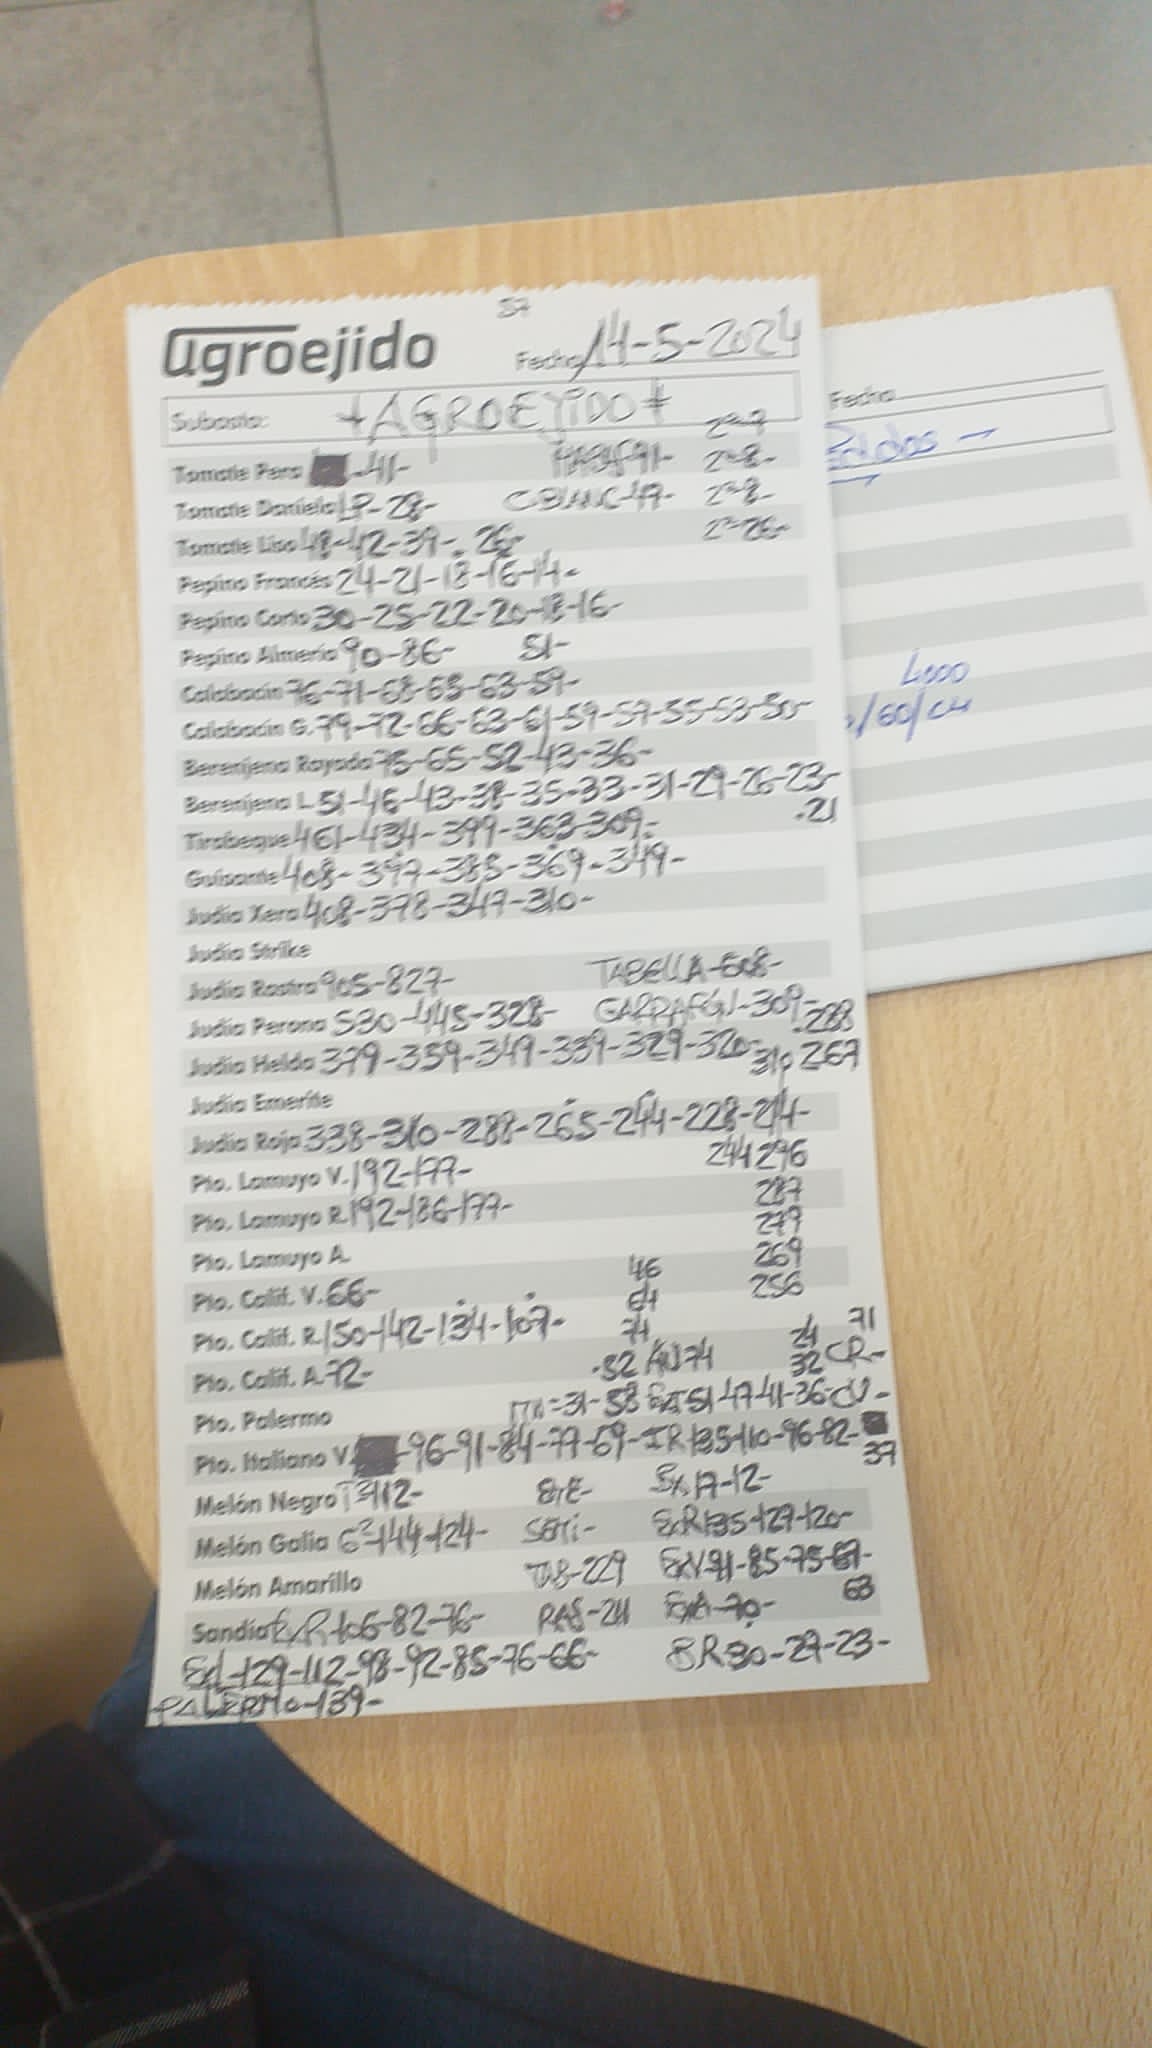 57
agroejido Fecha 14-5-2024
Subasta: *AGROEJIDO* 2ª-7
Tomate Pera -41- HABAS-91- 2ª-8-
Tomate Daniela LP-28- C-BLANC-47- 2ª-8-
Tomate Liso 48-42-39- 26- 2ª-26-
Pepino Francés 24-21-18-16-14-
Pepino Corto 30-25-22-20-18-16-
Pepino Almería 90-86- 51-
Calabacín 76-71-68-65-63-59-
Calabacín G. 79-72-66-63-61-59-57-55-53-50-
Berenjena Rayada 75-65-52-43-36-
Berenjena L. 51-46-43-38-35-33-31-29-26-23-
-21
Tirabeque 461-434-399-363-309-
Guisante 408-397-385-369-349-
Judía Xera 408-378-347-310-
Judía Strike
Judía Rastra 905-827- TABELLA-608-
Judía Perona 530-445-328- GARRAFÓN-309-
-288
Judía Helda 379-359-349-339-329-320-
310 267
Judía Emerite
Judía Roja 338-310-288-265-244-228-214-
Pto. Lamuyo V. 192-177- 244 296
Pto. Lamuyo R. 192-186-177- 287
279
Pto. Lamuyo A. 269
Pto. Calif. V. 66- 46 256
64
Pto. Calif. R. 150-142-134-107- 74 24 71
Pto. Calif. A. 72- -82 AN74 32 CR-
Pto. Palermo =31-58 51-47-41-36-CV-
Pto. Italiano V. -96-91-84-77-69-IR135-110-96-82-
37
Melón Negro T2ª112- 17-12-
Melón Galia G2ª-144-124- SEMI- ExR135-127-120-
Melón Amarillo TAB-229 ExV-91-85-75-67-
63
Sandía ExR-106-82-76- RAS-211 ExA-70-
-129-112-98-92-85-76-66- BR30-27-23-
PALERMO-139-
Fecha
Pedidos
4000
/60/CM